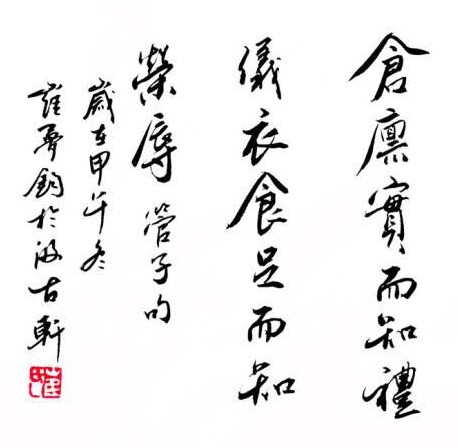 倉廪實而知禮
儀衣食足而知
榮辱管子句
歲在甲午冬
崔勇鈞於汲古軒